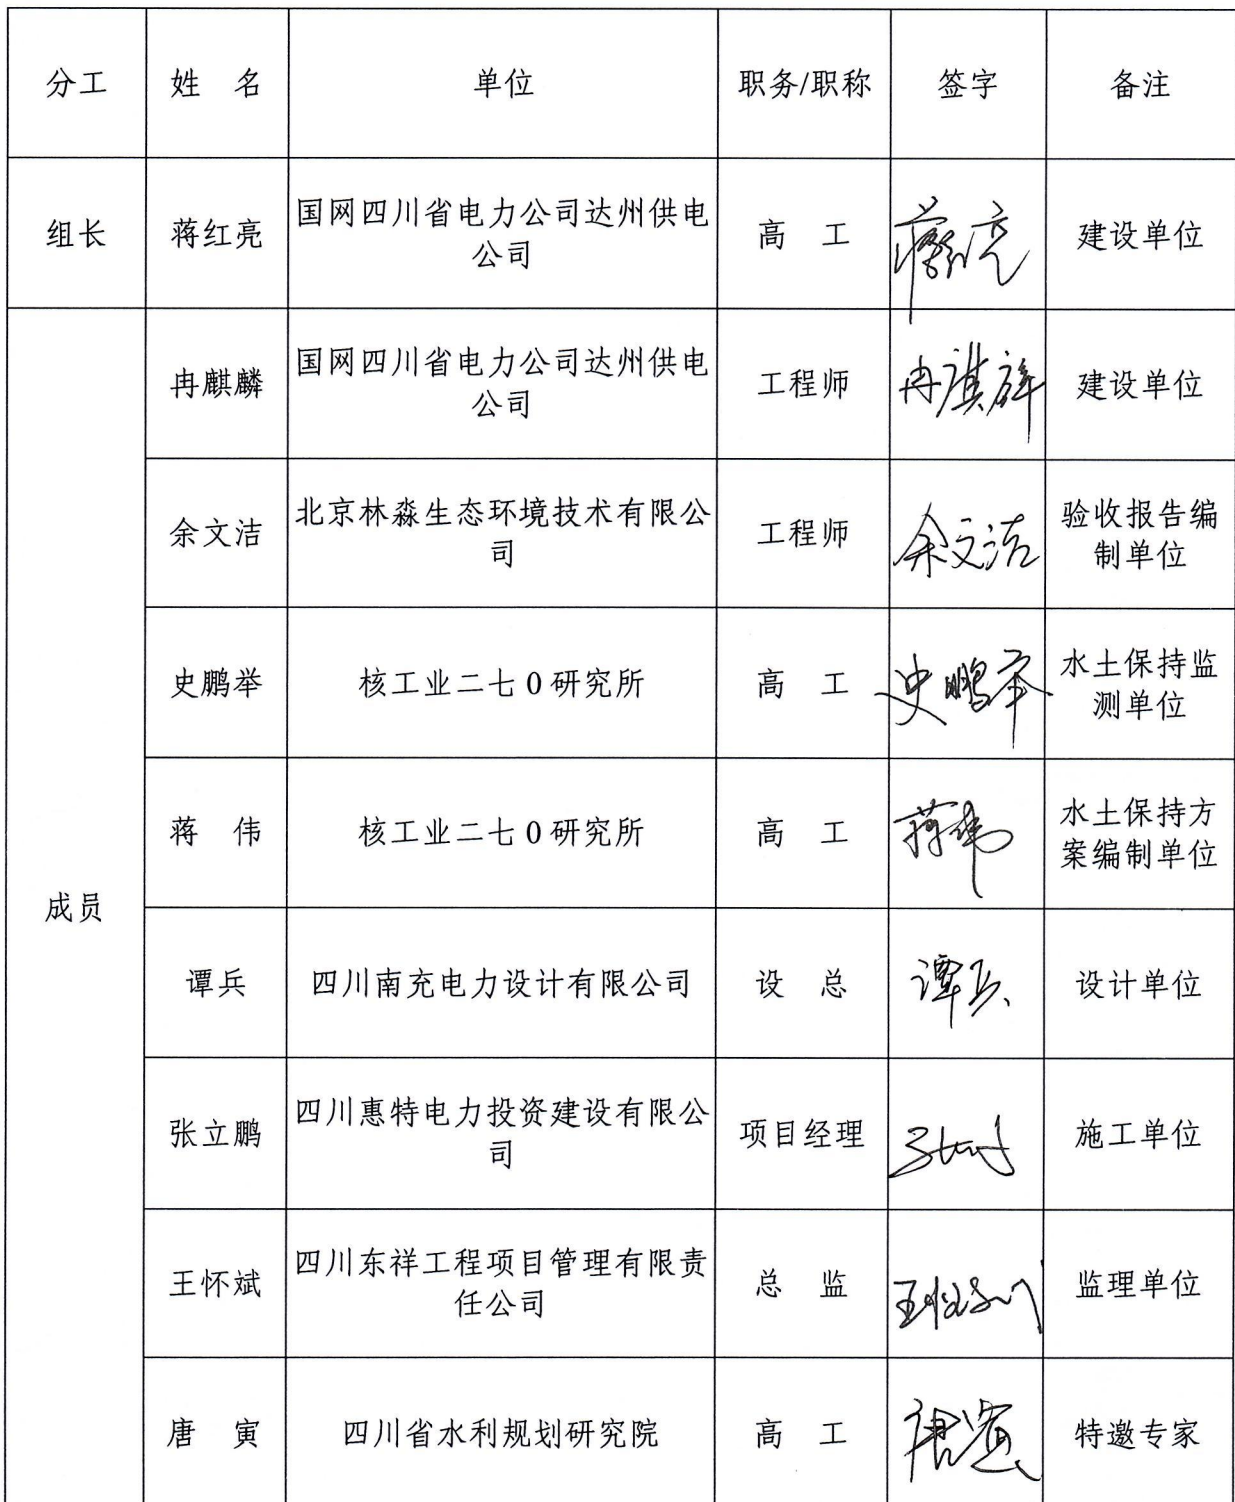 分工 姓 名 单位 职务/职称 签字 备注
组长 蒋红亮 国网四川省电力公司达州供电 高 工 蒋红亮 建设单位
公司
成员
冉麒麟 国网四川省电力公司达州供电 工程师 冉麒麟 建设单位
公司
余文洁 北京林淼生态环境技术有限公 工程师 余文洁 验收报告编
司 制单位
史鹏举 核工业二七0研究所 高 工 史鹏举 水土保持监
测单位
蒋 伟 核工业二七0研究所 高 工 蒋伟 水土保持方
案编制单位
谭兵 四川南充电力设计有限公司 设 总 谭兵 设计单位
张立鹏 四川惠特电力投资建设有限公 项目经理 施工单位
司
王怀斌 四川东祥工程项目管理有限责 总 监 王怀斌 监理单位
任公司
唐 寅 四川省水利规划研究院 高 工 唐寅 特邀专家